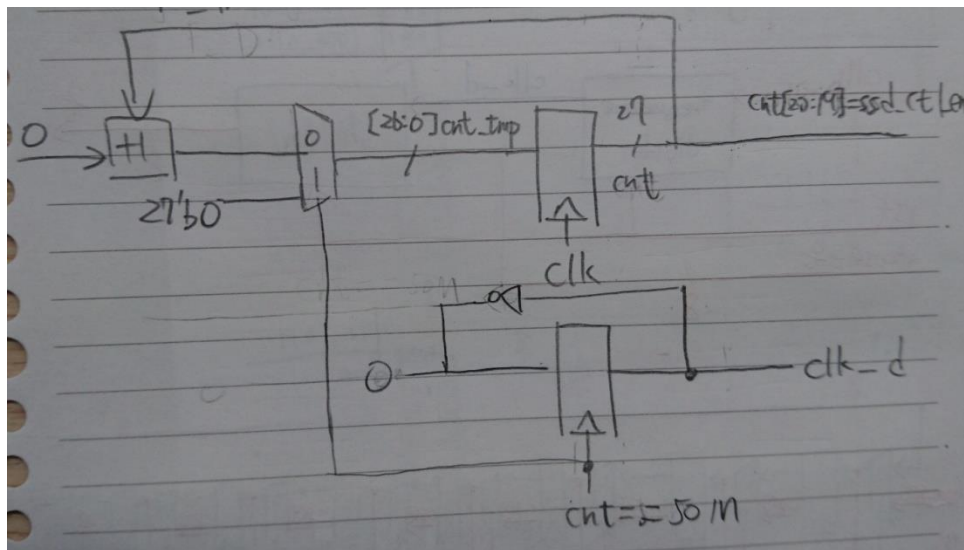 0
+1
27'b0
0
1
[26:0]cnt_tmp
27
cnt
cnt[20:19]=ssd_ctl_en
clk
0
clk_d
cnt==50M